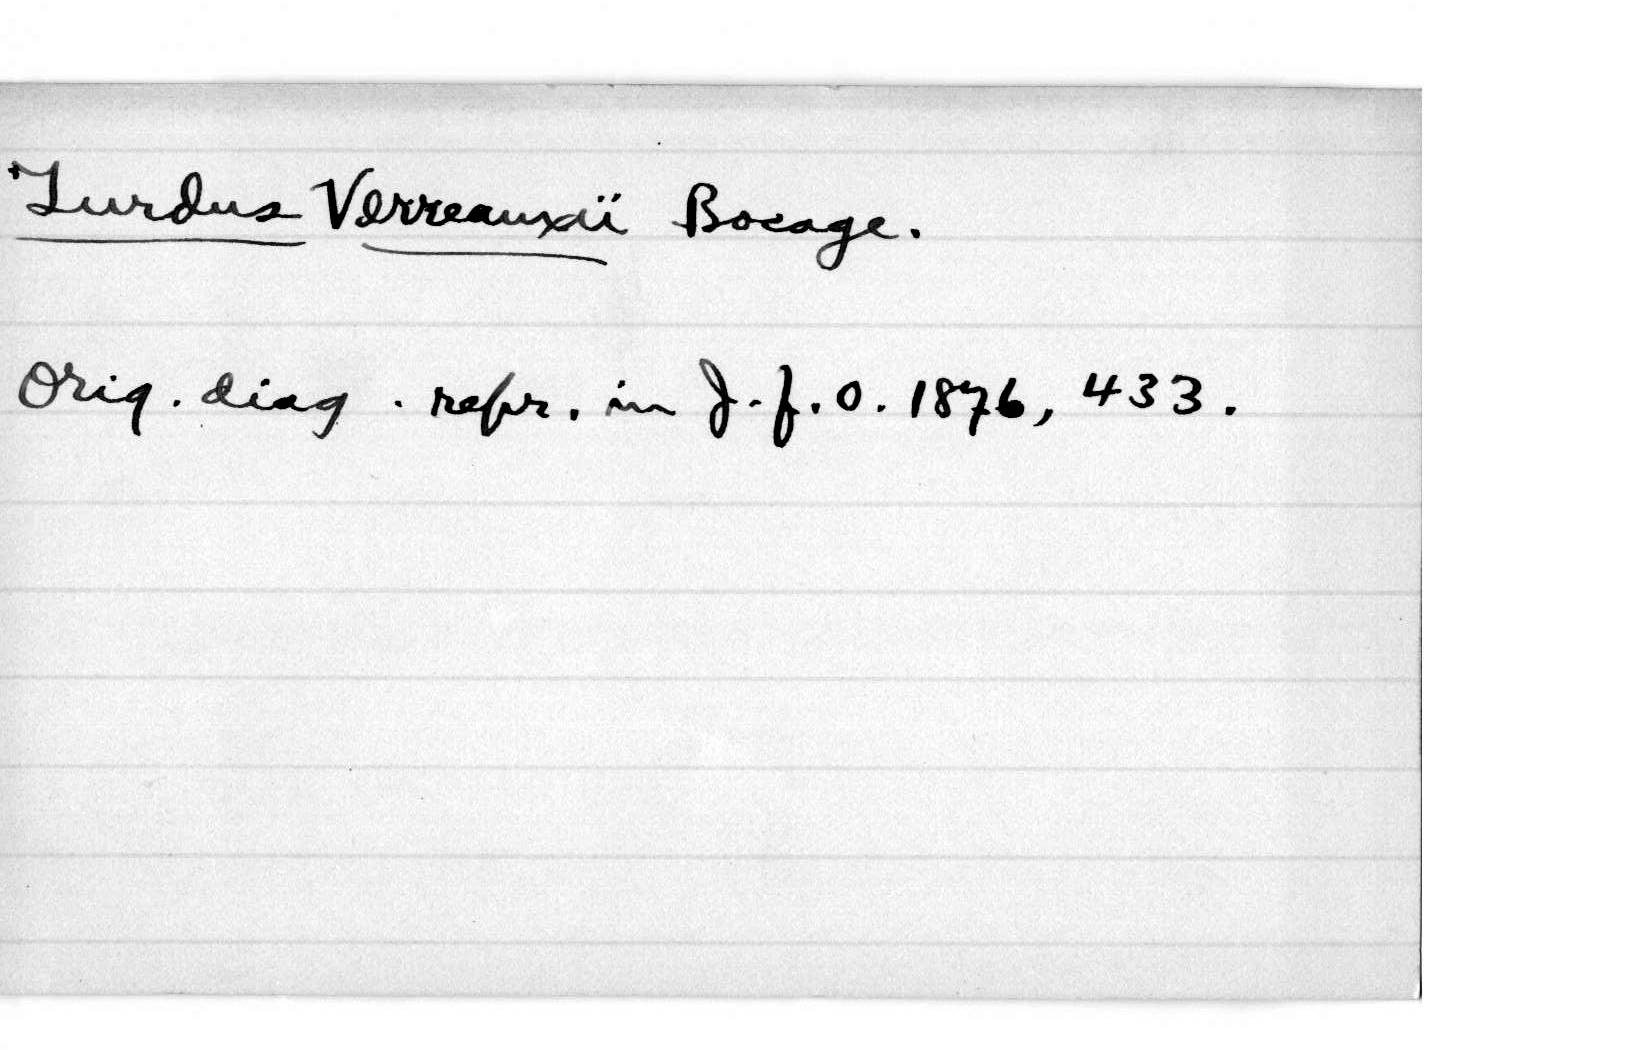 Turdus Verreauxii Bocage.
Orig. diag. repr. in J.f.O. 1876, 433.